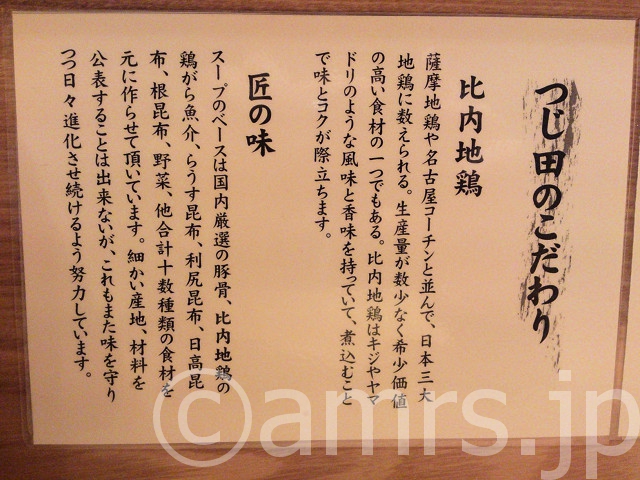 つじ田のこだわり
比内地鶏
薩摩地鶏や名古屋コーチンと並んで、日本三大
地鶏に数えられる。生産量が数少なく希少価値
の高い食材の一つでもある。比内地鶏はキジやヤマ
ドリのような風味と香味を持っていて、煮込むこと
で味とコクが際立ちます。
匠の味
スープのベースは国内厳選の豚骨、比内地鶏の
鶏がら魚介、らうす昆布、利尻昆布、日高昆
布、根昆布、野菜、他合計十数種類の食材を
元に作らせて頂いています。細かい産地、材料を
公表することは出来ないが、これもまた味を守り
つつ日々進化させ続けるよう努力しています。
©amrs.jp